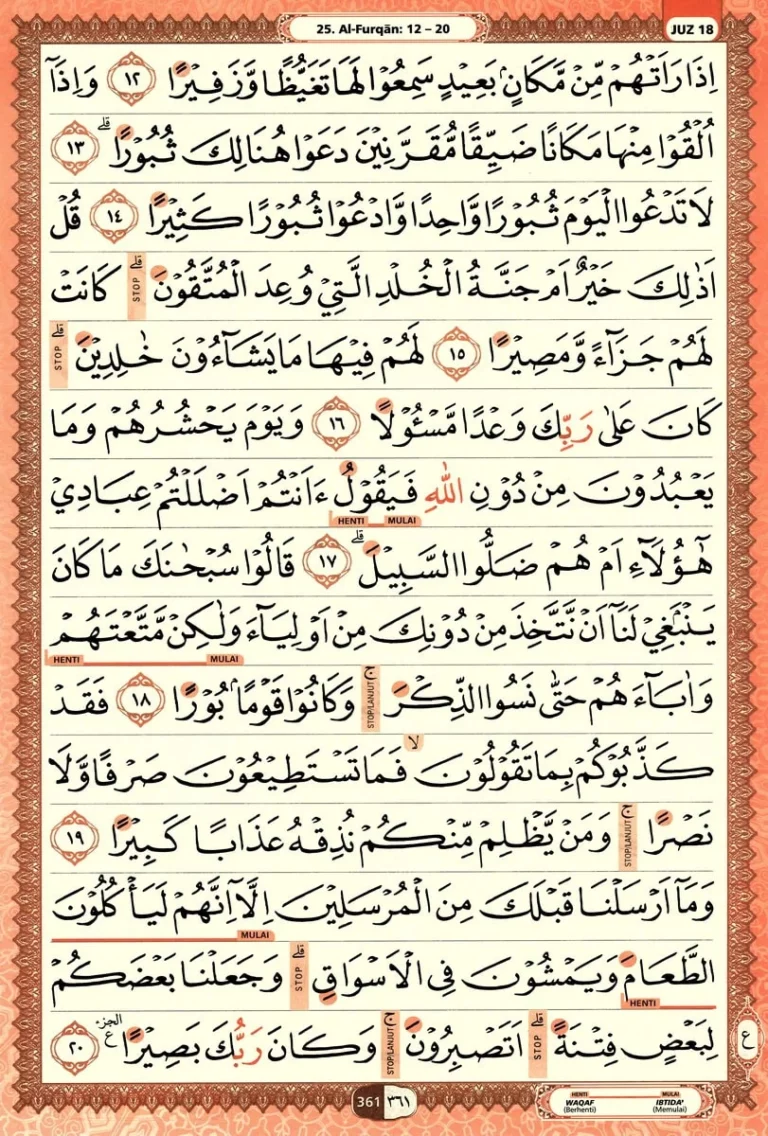 25. Al-Furqān: 12 – 20
JUZ 18
اِذَا رَاَتْهُمْ مِّنْ مَّكَانٍۢ بَعِيْدٍ سَمِعُوْا لَهَا تَغَيُّظًا وَّزَفِيْرًا ١٢ وَاِذَآ
اُلْقُوْا مِنْهَا مَكَانًا ضَيِّقًا مُّقَرَّنِيْنَ دَعَوْا هُنَالِكَ ثُبُوْرًاۗ ١٣
لَا تَدْعُوا الْيَوْمَ ثُبُوْرًا وَّاحِدًا وَّادْعُوْا ثُبُوْرًا كَثِيْرًا ١٤ قُلْ
اَذٰلِكَ خَيْرٌ اَمْ جَنَّةُ الْخُلْدِ الَّتِيْ وُعِدَ الْمُتَّقُوْنَۗ STOP كَانَتْ
لَهُمْ جَزَاۤءً وَّمَصِيْرًا ١٥ لَهُمْ فِيْهَا مَا يَشَاۤءُوْنَ خٰلِدِيْنَۗ STOP
كَانَ عَلٰى رَبِّكَ وَعْدًا مَّسْـُٔوْلًا ١٦ وَيَوْمَ يَحْشُرُهُمْ وَمَا
يَعْبُدُوْنَ مِنْ دُوْنِ اللّٰهِ فَيَقُوْلُ ءَاَنْتُمْ اَضْلَلْتُمْ عِبَادِيْ
HENTI MULAI
هٰٓؤُلَاۤءِ اَمْ هُمْ ضَلُّوا السَّبِيْلَۗ ١٧ قَالُوْا سُبْحٰنَكَ مَا كَانَ
يَنْۢبَغِيْ لَنَآ اَنْ نَّتَّخِذَ مِنْ دُوْنِكَ مِنْ اَوْلِيَاۤءَ وَلٰكِنْ مَّتَّعْتَهُمْ
MULAI HENTI
وَاٰبَاۤءَهُمْ حَتّٰى نَسُوا الذِّكْرَۚ STOP/LANJUT وَكَانُوْا قَوْمًاۢ بُوْرًا ١٨ فَقَدْ
كَذَّبُوْكُمْ بِمَا تَقُوْلُوْنَۙ فَمَا تَسْتَطِيْعُوْنَ صَرْفًا وَّلَا
نَصْرًاۚ STOP/LANJUT وَمَنْ يَّظْلِمْ مِّنْكُمْ نُذِقْهُ عَذَابًا كَبِيْرًا ١٩
وَمَآ اَرْسَلْنَا قَبْلَكَ مِنَ الْمُرْسَلِيْنَ اِلَّآ اِنَّهُمْ لَيَأْكُلُوْنَ
MULAI
الطَّعَامَ وَيَمْشُوْنَ فِى الْاَسْوَاقِۗ STOP وَجَعَلْنَا بَعْضَكُمْ
HENTI
لِبَعْضٍ فِتْنَةًۗ STOP اَتَصْبِرُوْنَۚ STOP/LANJUT وَكَانَ رَبُّكَ بَصِيْرًا ࣖ الجزء ٢٠
ع
361 ٣٦١
HENTI MULAI
WAQAF IBTIDA'
(Berhenti) (Memulai)